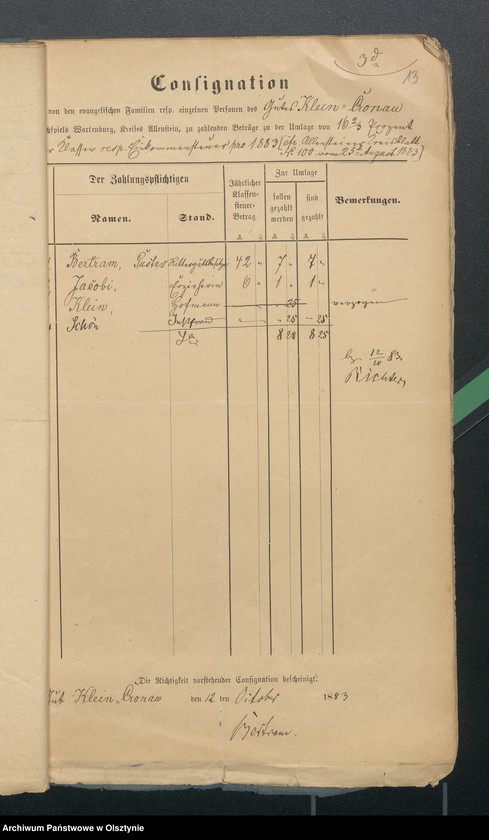 3 d
13
Consignation
von den evangelischen Familien resp. einzelnen Personen des Gutes Klein-Cronau
hspiels Wartenburg, Kreises Allenstein, zu zahlenden Beträge zu der Umlage von 16 2/3 Prozent
r Klassen resp. Einkommensteuer pro 1883 [cfr. Allensteiner Kreisblatt
№ 100 vom 25ten August 1883]
Der Zahlungspflichtigen
Namen.
Stand.
Jährlicher Klassen-steuer-Betrag.
Zur Umlage
sollen gezahlt werden
sind gezahlt
Bemerkungen.
Bertram, Gustav Rittergutsbesitzer 42 " 7 " 7 "
Jacobi, Erzieherin 6 " 1 " 1 "
Klein, Hofmann - 25 verzogen
Schön - 25 - 25
Sa 8 25 8 25
12/10 83.
Richter
Die Richtigkeit vorstehender Consignation bescheinigt:
Gut Klein-Cronau den 12 ten October 1883
Bertram.
Archiwum Państwowe w Olsztynie